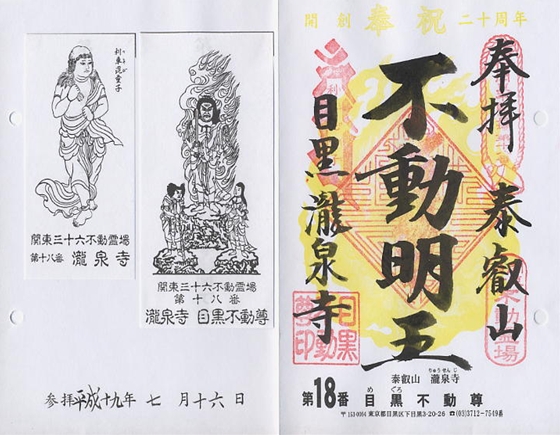 利車毘童子
関東三十六不動霊場
第十八番 瀧泉寺
関東三十六不動霊場
第十八番
瀧泉寺 目黒不動尊
参拝平成十九年 七 月十六日
開創奉祝二十周年
奉拝 泰叡山
不動明王
目黒瀧泉寺
泰叡山 瀧泉寺
りゅうせんじ
第18番 目黒不動尊
めぐろ
〒153-0064 東京都目黒区下目黒3-20-26 ☎(03)3712-7549㈹